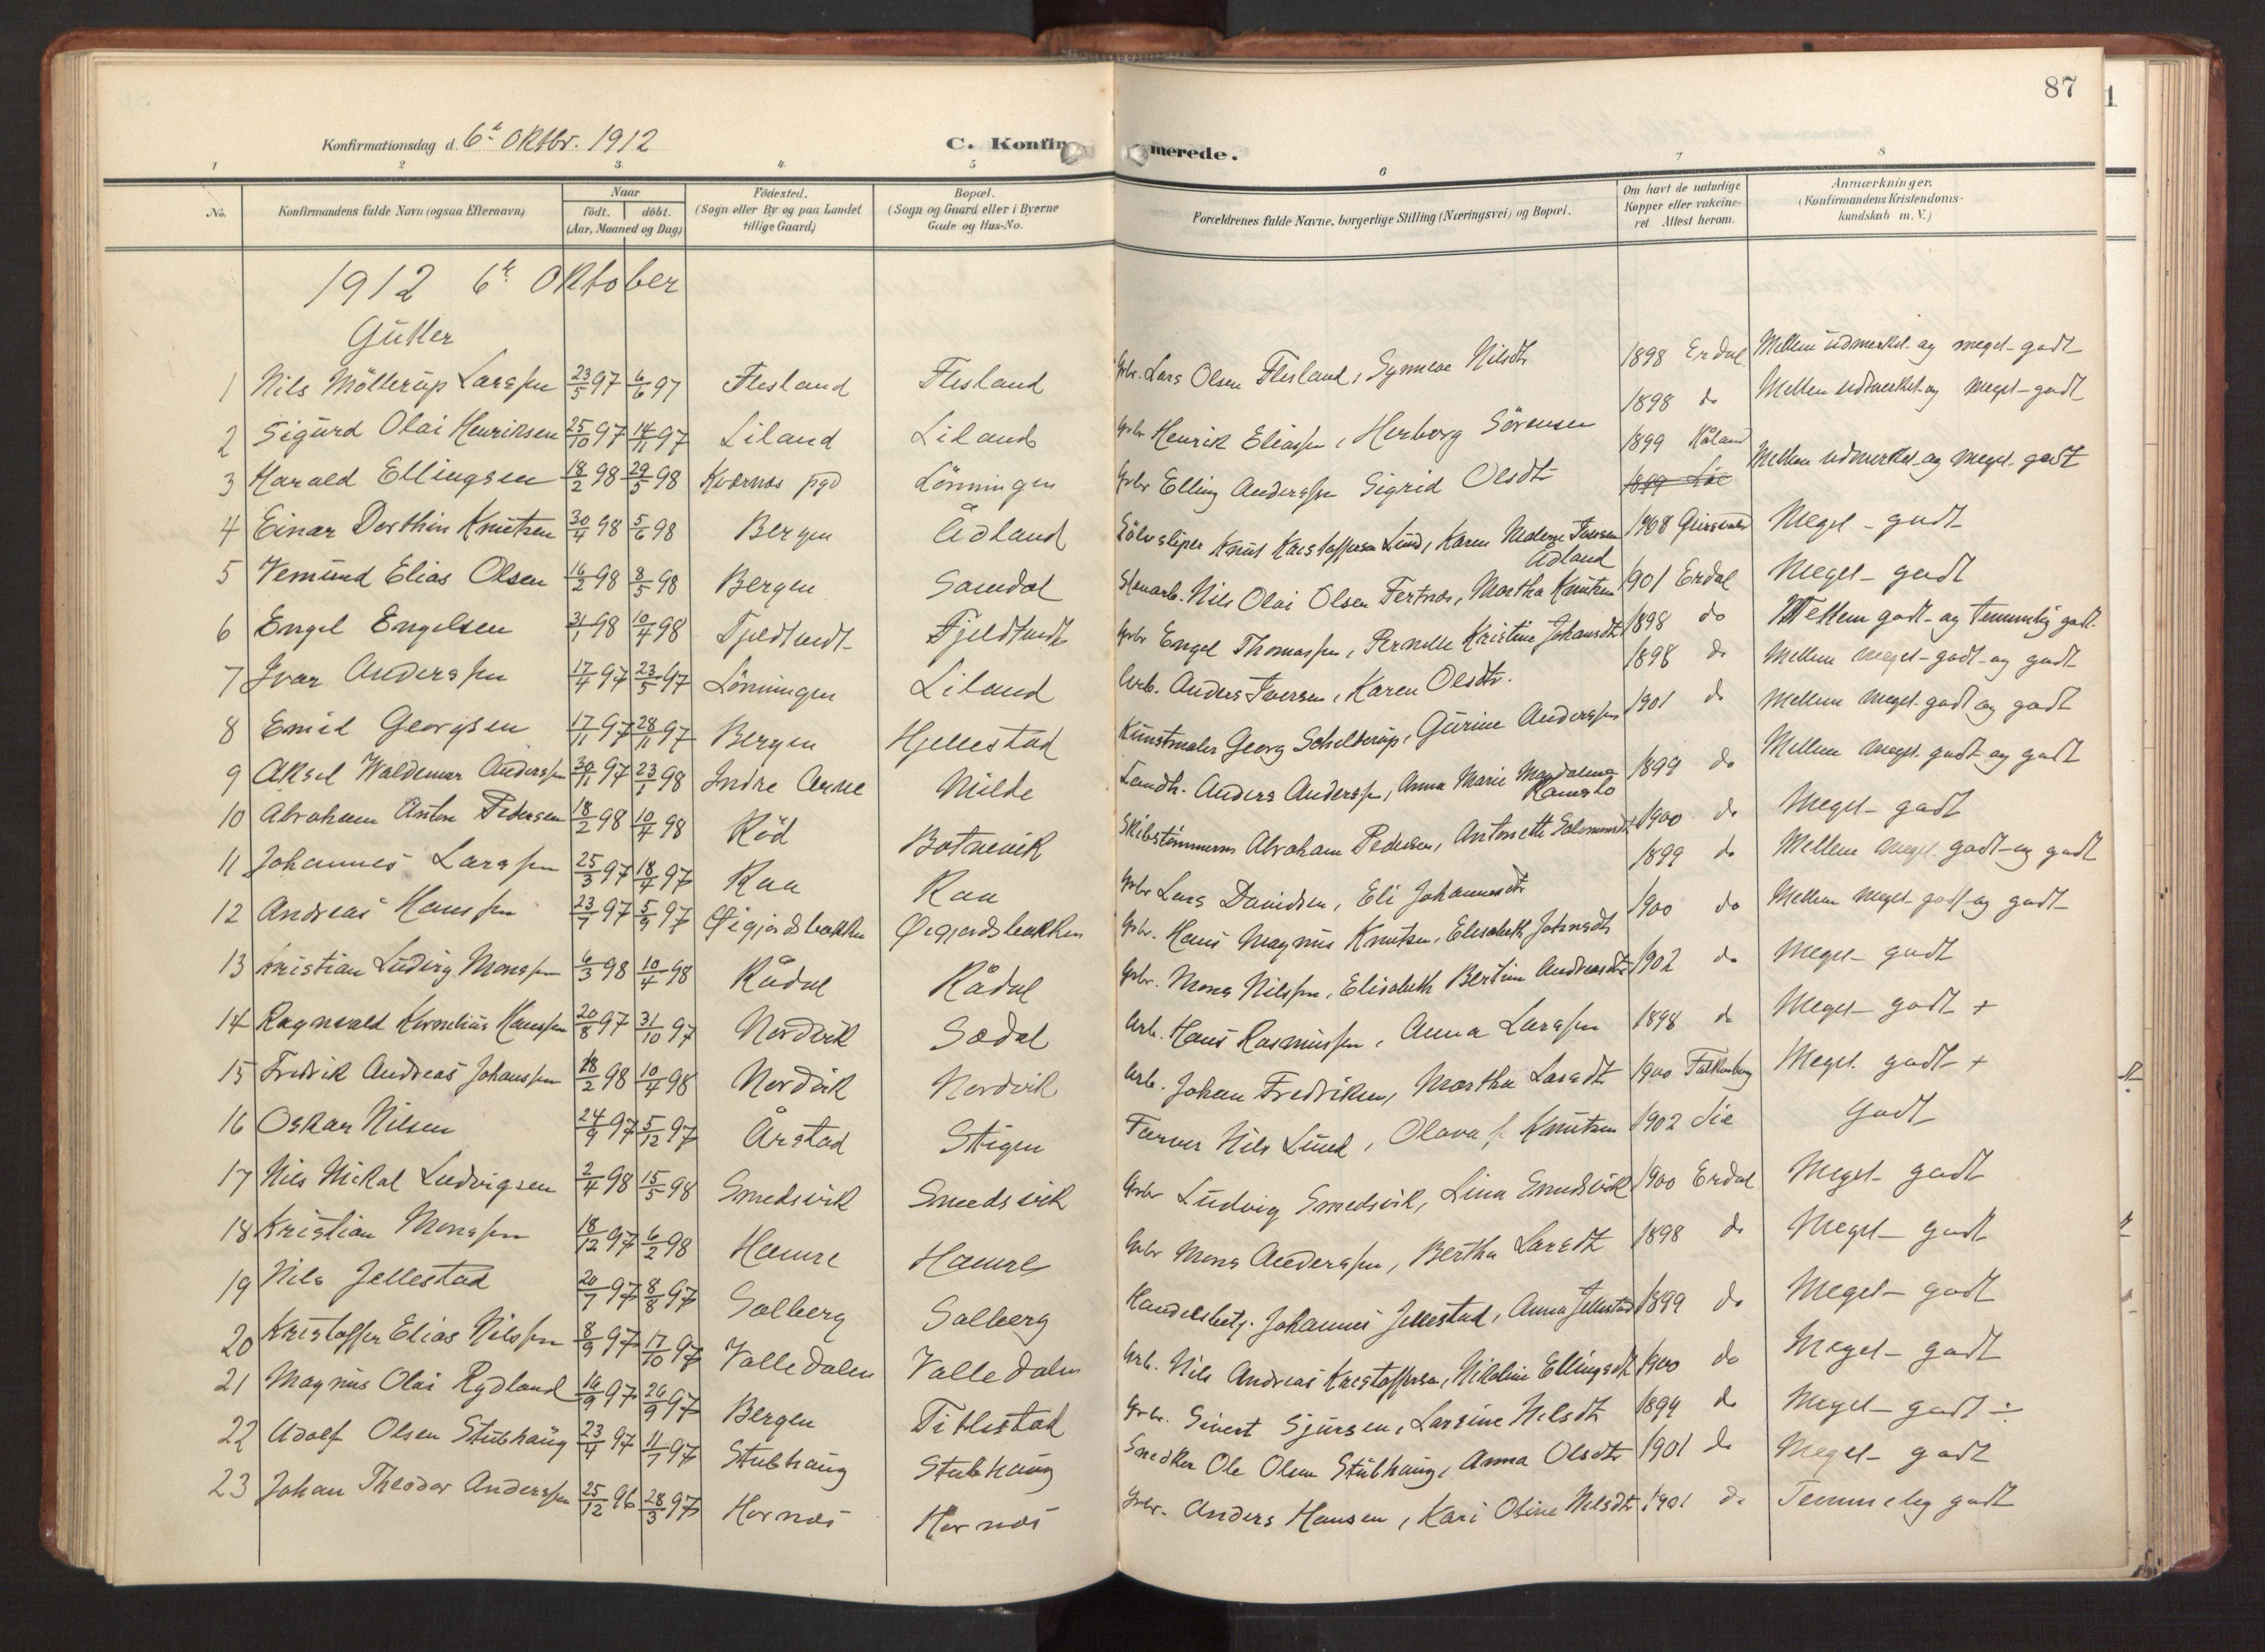 87
Konfirmationsdag d. 6te Oktbr. 1912
C. Konfirmerede.
1 2 3. 4. 5 6 7 8
No. Konfirmandens fulde Navn (ogsaa Efternavn) Naar født. døbt. (Aar, Maaned og Dag) Födested. (Sogn eller By og paa Landet tillige Gaard) Bopæl. (Sogn og Gaard eller i Byerne Gade og Hus-No. Forældrenes fulde Navne, borgerlige Stilling (Næringsvei) og Bopæl. Om havt de naturlige Kopper eller vakcineret Attest herom. Anmærkninger. (Konfirmandens Kristendomskundskab m. V.)
1912 6te Oktober
Gutter
1 Nils Möllerup Larssen 23/5 97 6/6 97 Flesland Flesland Grbr. Lars Olsen Flesland, Synneve Nilsdtr 1898 Erdal Mellem udmerket og meget godt
2 Sigurd Olai Henriksen 25/10 97 14/11 97 Liland Liland Grbr Henrik Eliassen, Herborg Sörensen 1898 do Mellem udmerket og meget godt
3 Harald Ellingsen 18/2 98 29/5 98 Kværnes pgd Lönningen Grbr Elling Anderssen Sigrid Olsdtr 1899 Kåland Mellem udmerket og meget godt
1899 Lie
4 Einar Dorthin Knutsen 30/4 98 5/6 98 Bergen Ådland Sölvsliper Knut Kristoffersen Lund, Karen Iversen Ådland 1908 Meget godt
5 Vemund Elias Olsen 16/2 98 8/5 98 Bergen Samdal Stenarb. Nils Olai Olsen Tertnes, Martha Knutsen 1901 Erdal Meget godt
6 Engel Engelsen 31/1 98 10/4 98 Fjeldtvedt Fjeldtvedt Grbr Engel Thomassen, Pernille Kristine Johansdtr 1898 do Mellem godt og temmelig godt
7 Ivar Anderssen 17/4 97 23/5 97 Lönningen Liland Arb. Anders Iversen, Karen Olsdtr. 1898 do Mellem meget godt og godt
8 Emil Georgsen 17/11 97 28/11 97 Bergen Hjellestad Kunstmaler Georg Schelderup, Gurine Anderssen 1901 do Mellem meget godt og godt
9 Aksel Waldemar Anderssen 30/11 97 23/1 98 Indre Arne Milde Landh. Anders Anderssen, Anna Marie Magdalena Ramslo 1899 do Mellem meget godt og godt
10 Abraham Anton Pedersen 18/2 98 10/4 98 Röd Botnevik Skibstömmerm Abraham Pedersen, Antonette Salomonsdtr 1900 do Meget godt
11 Johannes Larssen 25/3 97 18/4 97 Raa Raa Grbr Lars Davidsen, Eli Johannesdtr 1899 do Mellem meget godt og godt
12 Andreas Hanssen 23/7 97 5/9 97 Øigjordsbakken Øigjordsbakken Grbr. Hans Magnus Knutsen, Elisabeth Johnsdtr 1900 do Mellem meget godt og godt
13 Kristian Ludvig Monssen 6/3 98 10/4 98 Rådal Rådal Grbr. Mons Nilssen, Elisabeth Bertine Andreasdtr 1902 do Meget godt
14 Ragnvald Kornelius Hanssen 20/8 97 31/10 97 Nordvik Sædal Arb. Hans Rasmussen, Anna Larssen 1898 do Meget godt +
15 Fredrik Andreas Johanssen 18/2 98 10/4 98 Nordvik Nordvik Arb. Johan Fredriksen, Martha Larsdtr 1900 Falkenberg Meget godt +
16 Oskar Nilsen 24/9 97 5/12 97 Årstad Stigen Farver Nils Lund, Olava f. Knutsen 1902 Lie Godt
17 Nils Mikal Ludvigsen 2/4 98 15/5 98 Smedsvik Smedsvik Grbr Ludvig Smedsvik, Lina Smedsvik 1900 Erdal Meget godt
18 Kristian Monssen 18/12 97 6/2 98 Hamre Hamre Grbr Mons Anderssen, Bertha Larsdtr 1898 do Meget godt
19 Nils Jellestad 20/7 97 8/8 97 Solberg Solberg Handelsbetj. Johannes Jellestad, Anna Jellestad 1899 do Meget godt
20 Kristoffer Elias Nilssen 8/9 97 17/10 97 Valledalen Valledalen Arb. Nils Andreas Kristoffersen, Nikoline Ellingsdtr 1900 do Meget godt
21 Magnus Olai Rydland 16/9 97 26/9 97 Bergen Titlestad Grbr. Sivert Sjursen, Larsine Nilsdtr 1899 do Meget godt ÷
22 Adolf Olsen Stubhaug 23/4 97 11/7 97 Stubhaug Stubhaug Snedker Ole Olsen Stubhaug, Anna Olsdtr 1901 do Meget godt
23 Johan Theodor Anderssen 25/12 96 28/3 97 Hornes Hornes Grbr. Anders Hansen, Kari Oline Nilsdtr 1901 do Temmelig godt